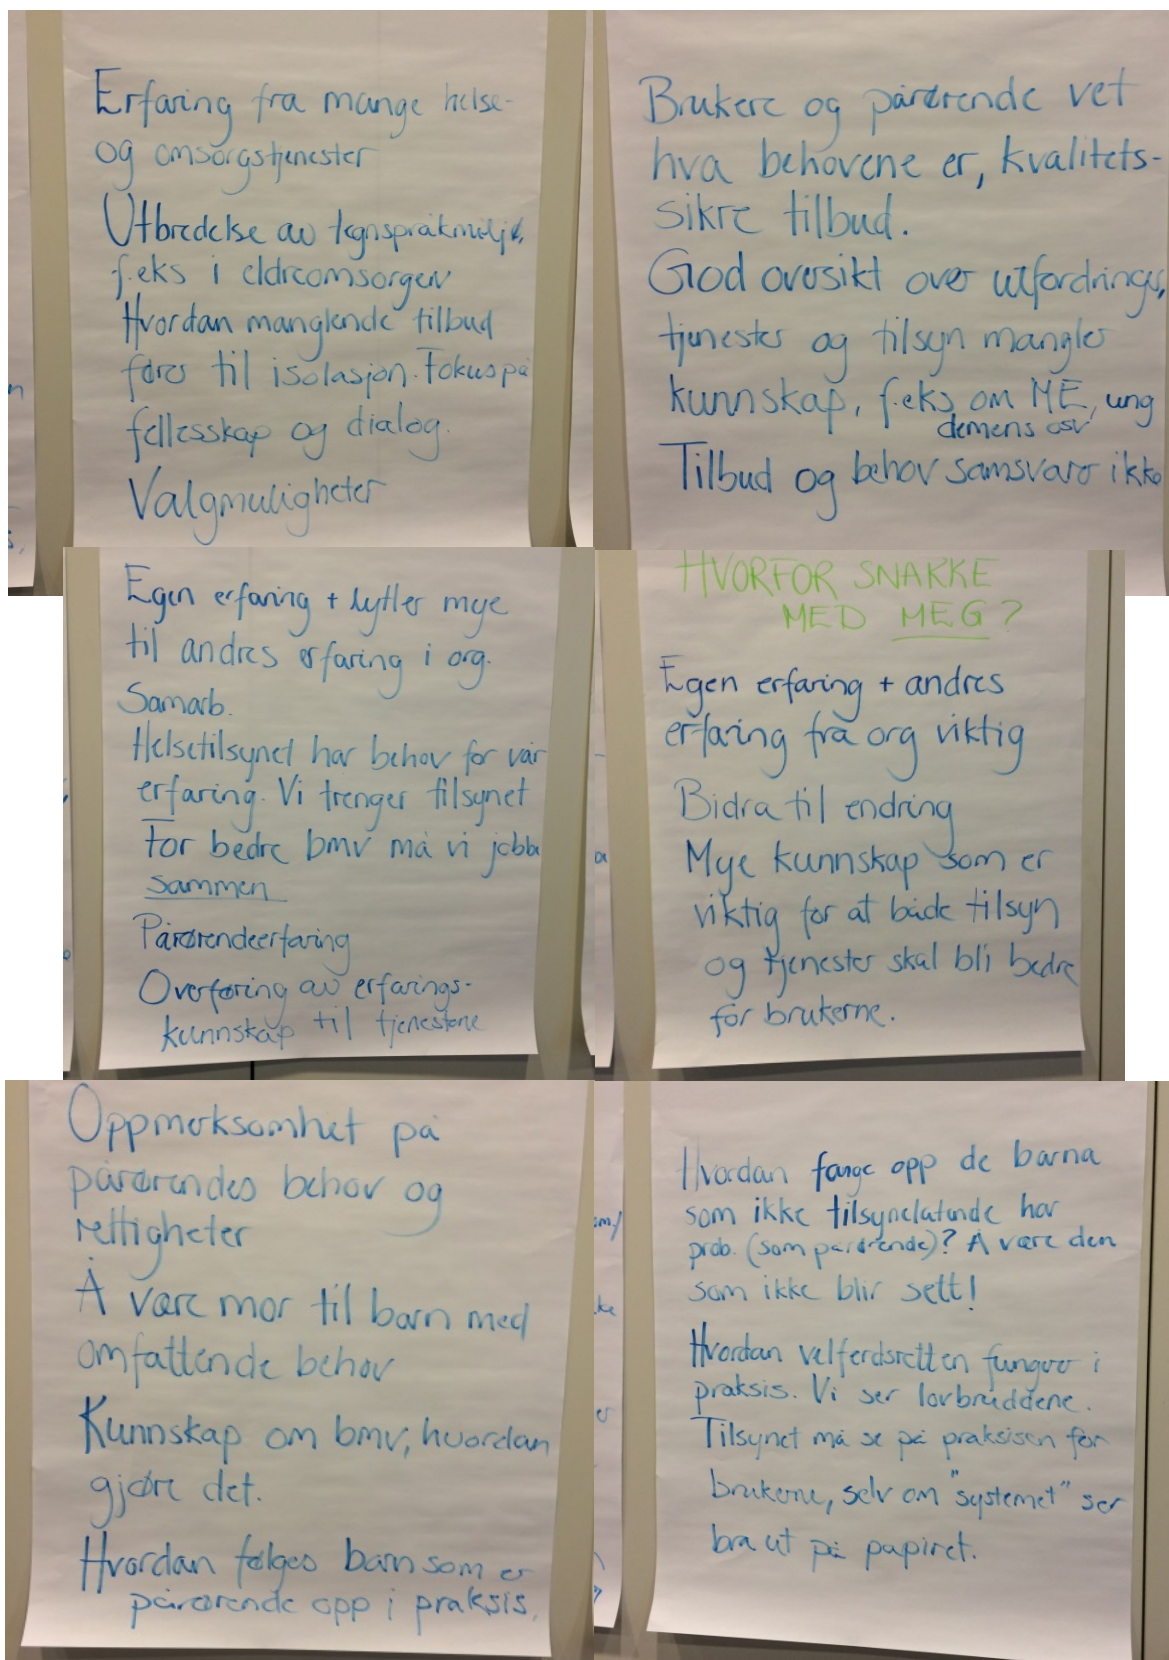 Erfaring fra mange helse-
og omsorgstjenester
Utbredelse av tegnspråkmiljø,
f.eks i eldreomsorgen
Hvordan manglende tilbud
fører til isolasjon. Fokus på
fellesskap og dialog.
Valgmuligheter
Brukere og pårørende vet
hva behovene er, kvalitets-
sikre tilbud.
God oversikt over utfordringer,
tjenester og tilsyn mangler
kunnskap, f.eks om ME, ung
demens osv
Tilbud og behov samsvarer ikke
Egen erfaring + lytter mye
til andres erfaring i org.
Samarb.
Helsetilsynet har behov for vår
erfaring. Vi trenger tilsynet
For bedre bmv må vi jobbe
sammen
Pårørendeerfaring
Overføring av erfarings-
kunnskap til tjenestene
HVORFOR SNAKKE
MED MEG?
Egen erfaring + andres
erfaring fra org viktig
Bidra til endring
Mye kunnskap som er
viktig for at både tilsyn
og tjenester skal bli bedre
for brukerne.
Oppmerksomhet på
pårørendes behov og
rettigheter
Å være mor til barn med
omfattende behov
Kunnskap om bmv, hvordan
gjøre det.
Hvordan følges barn som er
pårørende opp i praksis.
Hvordan fange opp de barna
som ikke tilsynelatende har
prob. (som pårørende)? Å være den
som ikke blir sett!
Hvordan velferdsretten fungerer i
praksis. Vi ser lovbruddene.
Tilsynet må se på praksisen for
brukerne, selv om "systemet" ser
bra ut på papiret.